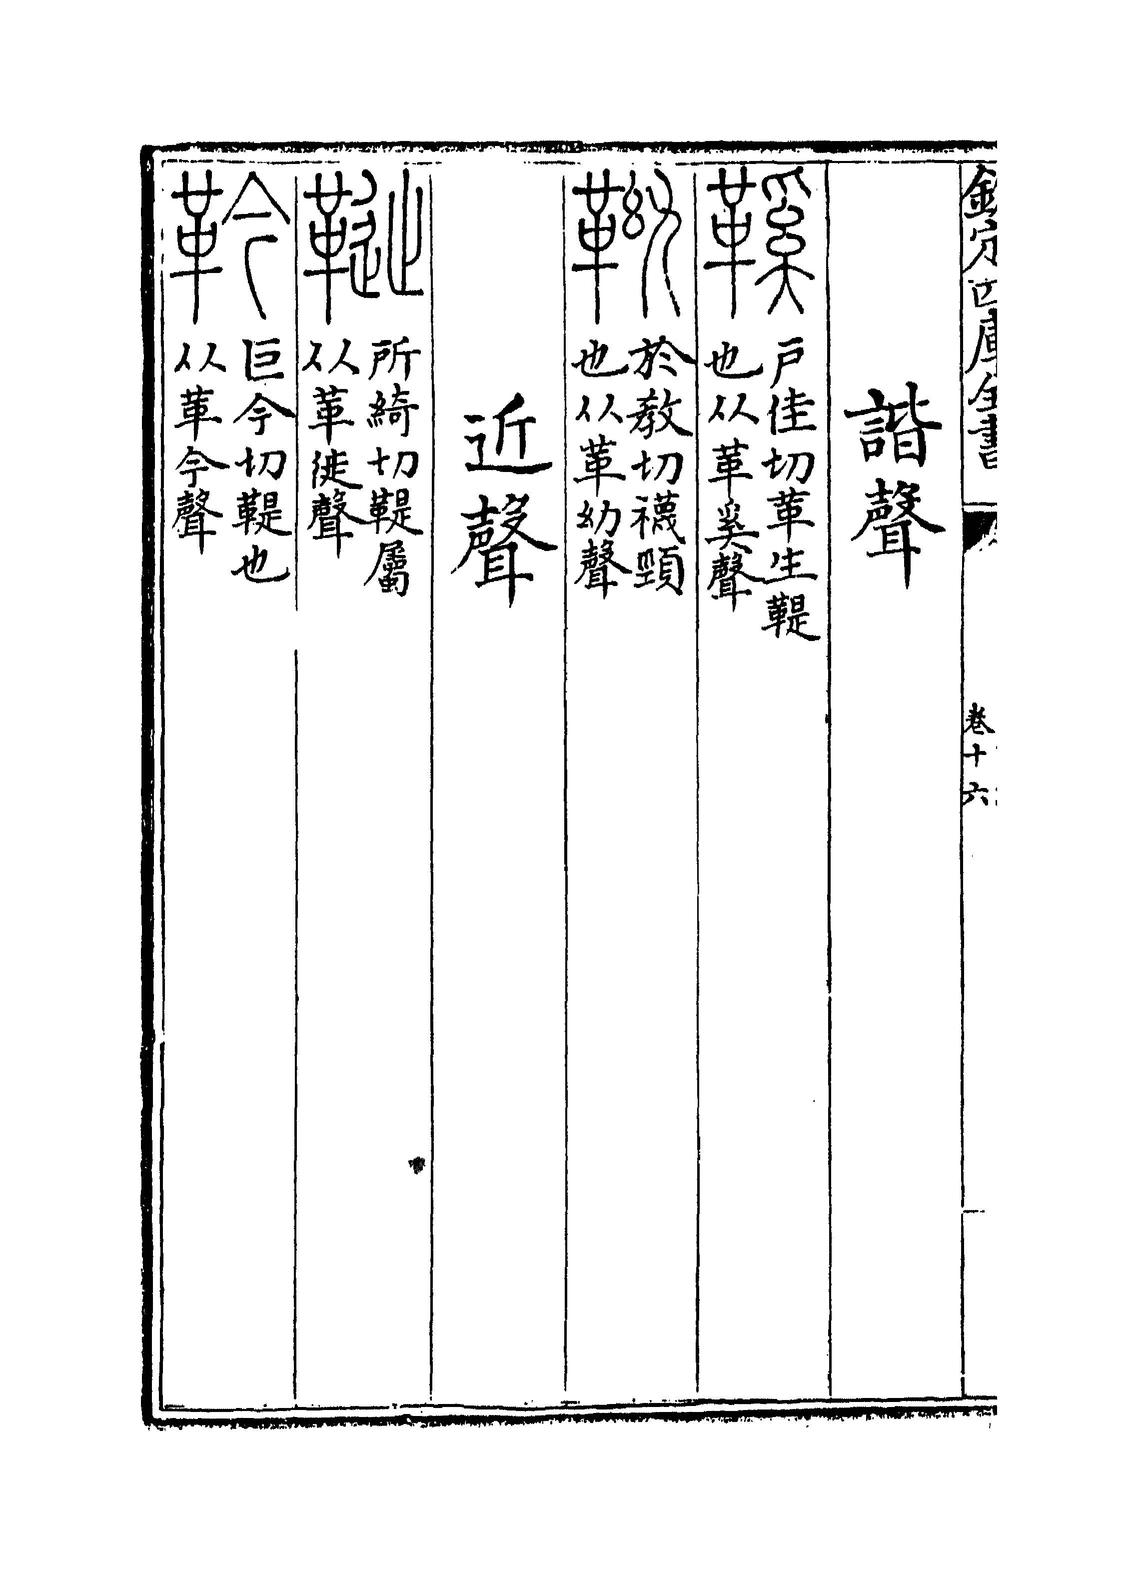 欽定四庫全書
卷十六
諧聲
鞵
戶佳切革生鞮
也从革奚聲
靿
於教切襪頸
也从革幼聲
近聲
𩌦
所綺切鞮屬
从革徙聲
靲
巨今切鞮也
从革今聲